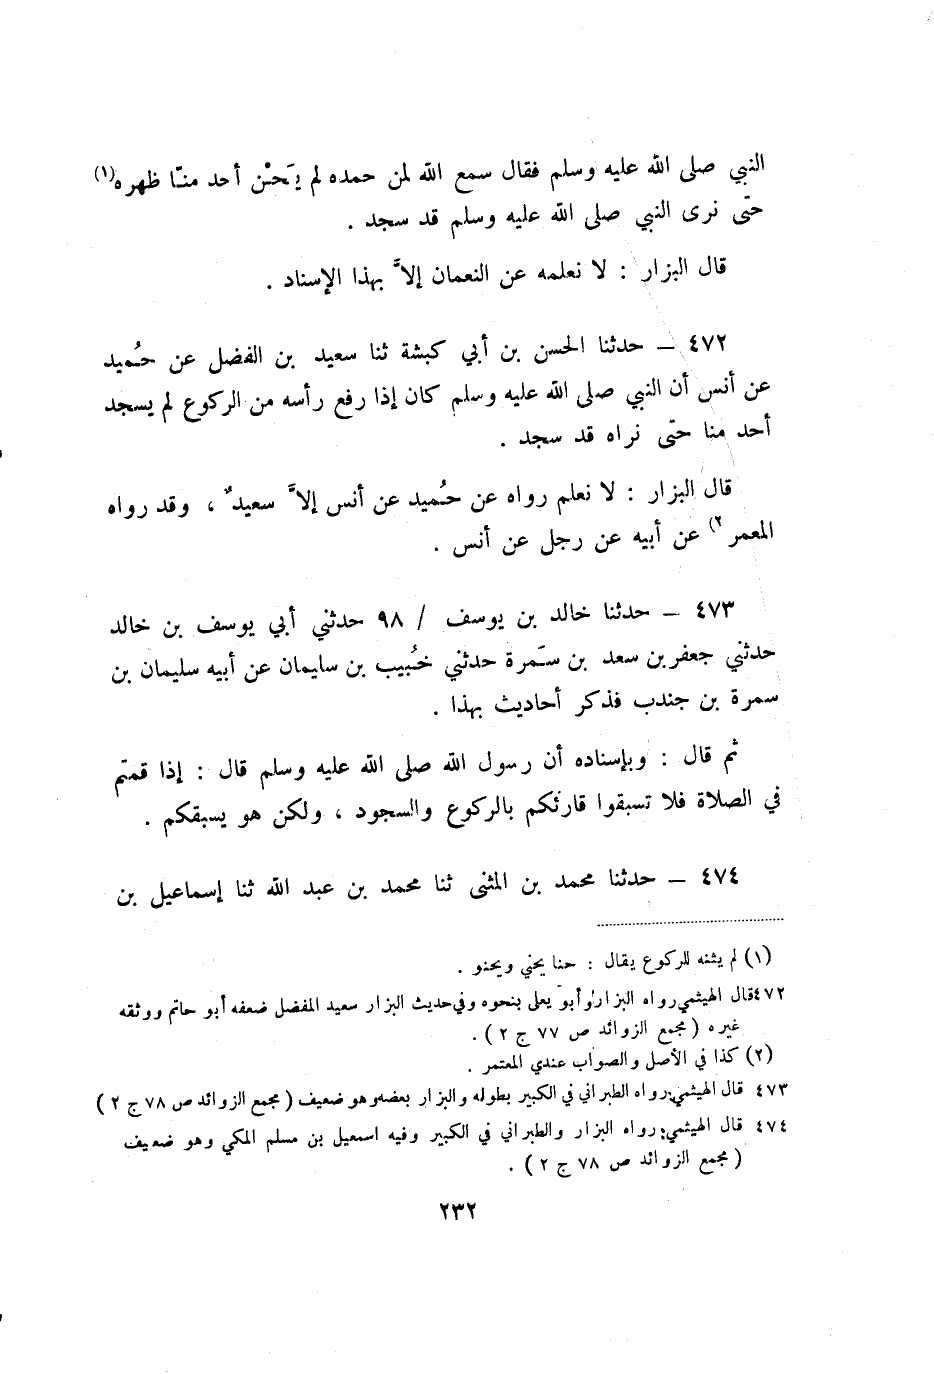 النبي صلى الله عليه وسلم فقال سمع الله لمن حمده لم يَحنْ أحد منّا ظهره(١)
حتى نرى النبي صلى الله عليه وسلم قد سجد .
قال البزار : لا نعلمه عن النعمان إلاَّ بهذا الإسناد .
٤٧٢ ــ حدثنا الحسن بن أبي كبشة ثنا سعيد بن الفضل عن حُميد
عن أنس أن النبي صلى الله عليه وسلم كان إذا رفع رأسه من الركوع لم يسجد
أحد منا حتى نراه قد سجد .
قال البزار : لا نعلم رواه عن حُميد عن أنس إلاَّ سعيدٌ ، وقد رواه
المعمر(٢) عن أبيه عن رجل عن أنس .
٤٧٣ ــ حدثنا خالد بن يوسف / ٩٨ حدثني أبي يوسف بن خالد
حدثني جعفر بن سعد بن سَمرة حدثني خُبيب بن سليمان عن أبيه سليمان بن
سمرة بن جندب فذكر أحاديث بهذا .
ثم قال : وبإسناده أن رسول الله صلى الله عليه وسلم قال : إذا قمتم
في الصلاة فلا تسبقوا قارئكم بالركوع والسجود ، ولكن هو يسبقكم .
٤٧٤ ــ حدثنا محمد بن المثنى ثنا محمد بن عبد الله ثنا إسماعيل بن
(١) لم يثنه للركوع يقال : حنا يحني ويحنو .
٤٧٢ قال الهيثمي رواه البزار وأبو يعلى بنحوه وفي حديث البزار سعيد المفضل ضعفه أبو حاتم ووثقه
غيره ( مجمع الزوائد ص ٧٧ ج ٢ ) .
(٢) كذا في الأصل والصواب عندي المعتمر .
٤٧٣ قال الهيثمي: رواه الطبراني في الكبير بطوله والبزار بعضه وهو ضعيف ( مجمع الزوائد ص ٧٨ ج ٢ )
٤٧٤ قال الهيثمي: رواه البزار والطبراني في الكبير وفيه اسمعيل بن مسلم المكي وهو ضعيف
( مجمع الزوائد ص ٧٨ ج ٢ ) .
٢٣٢